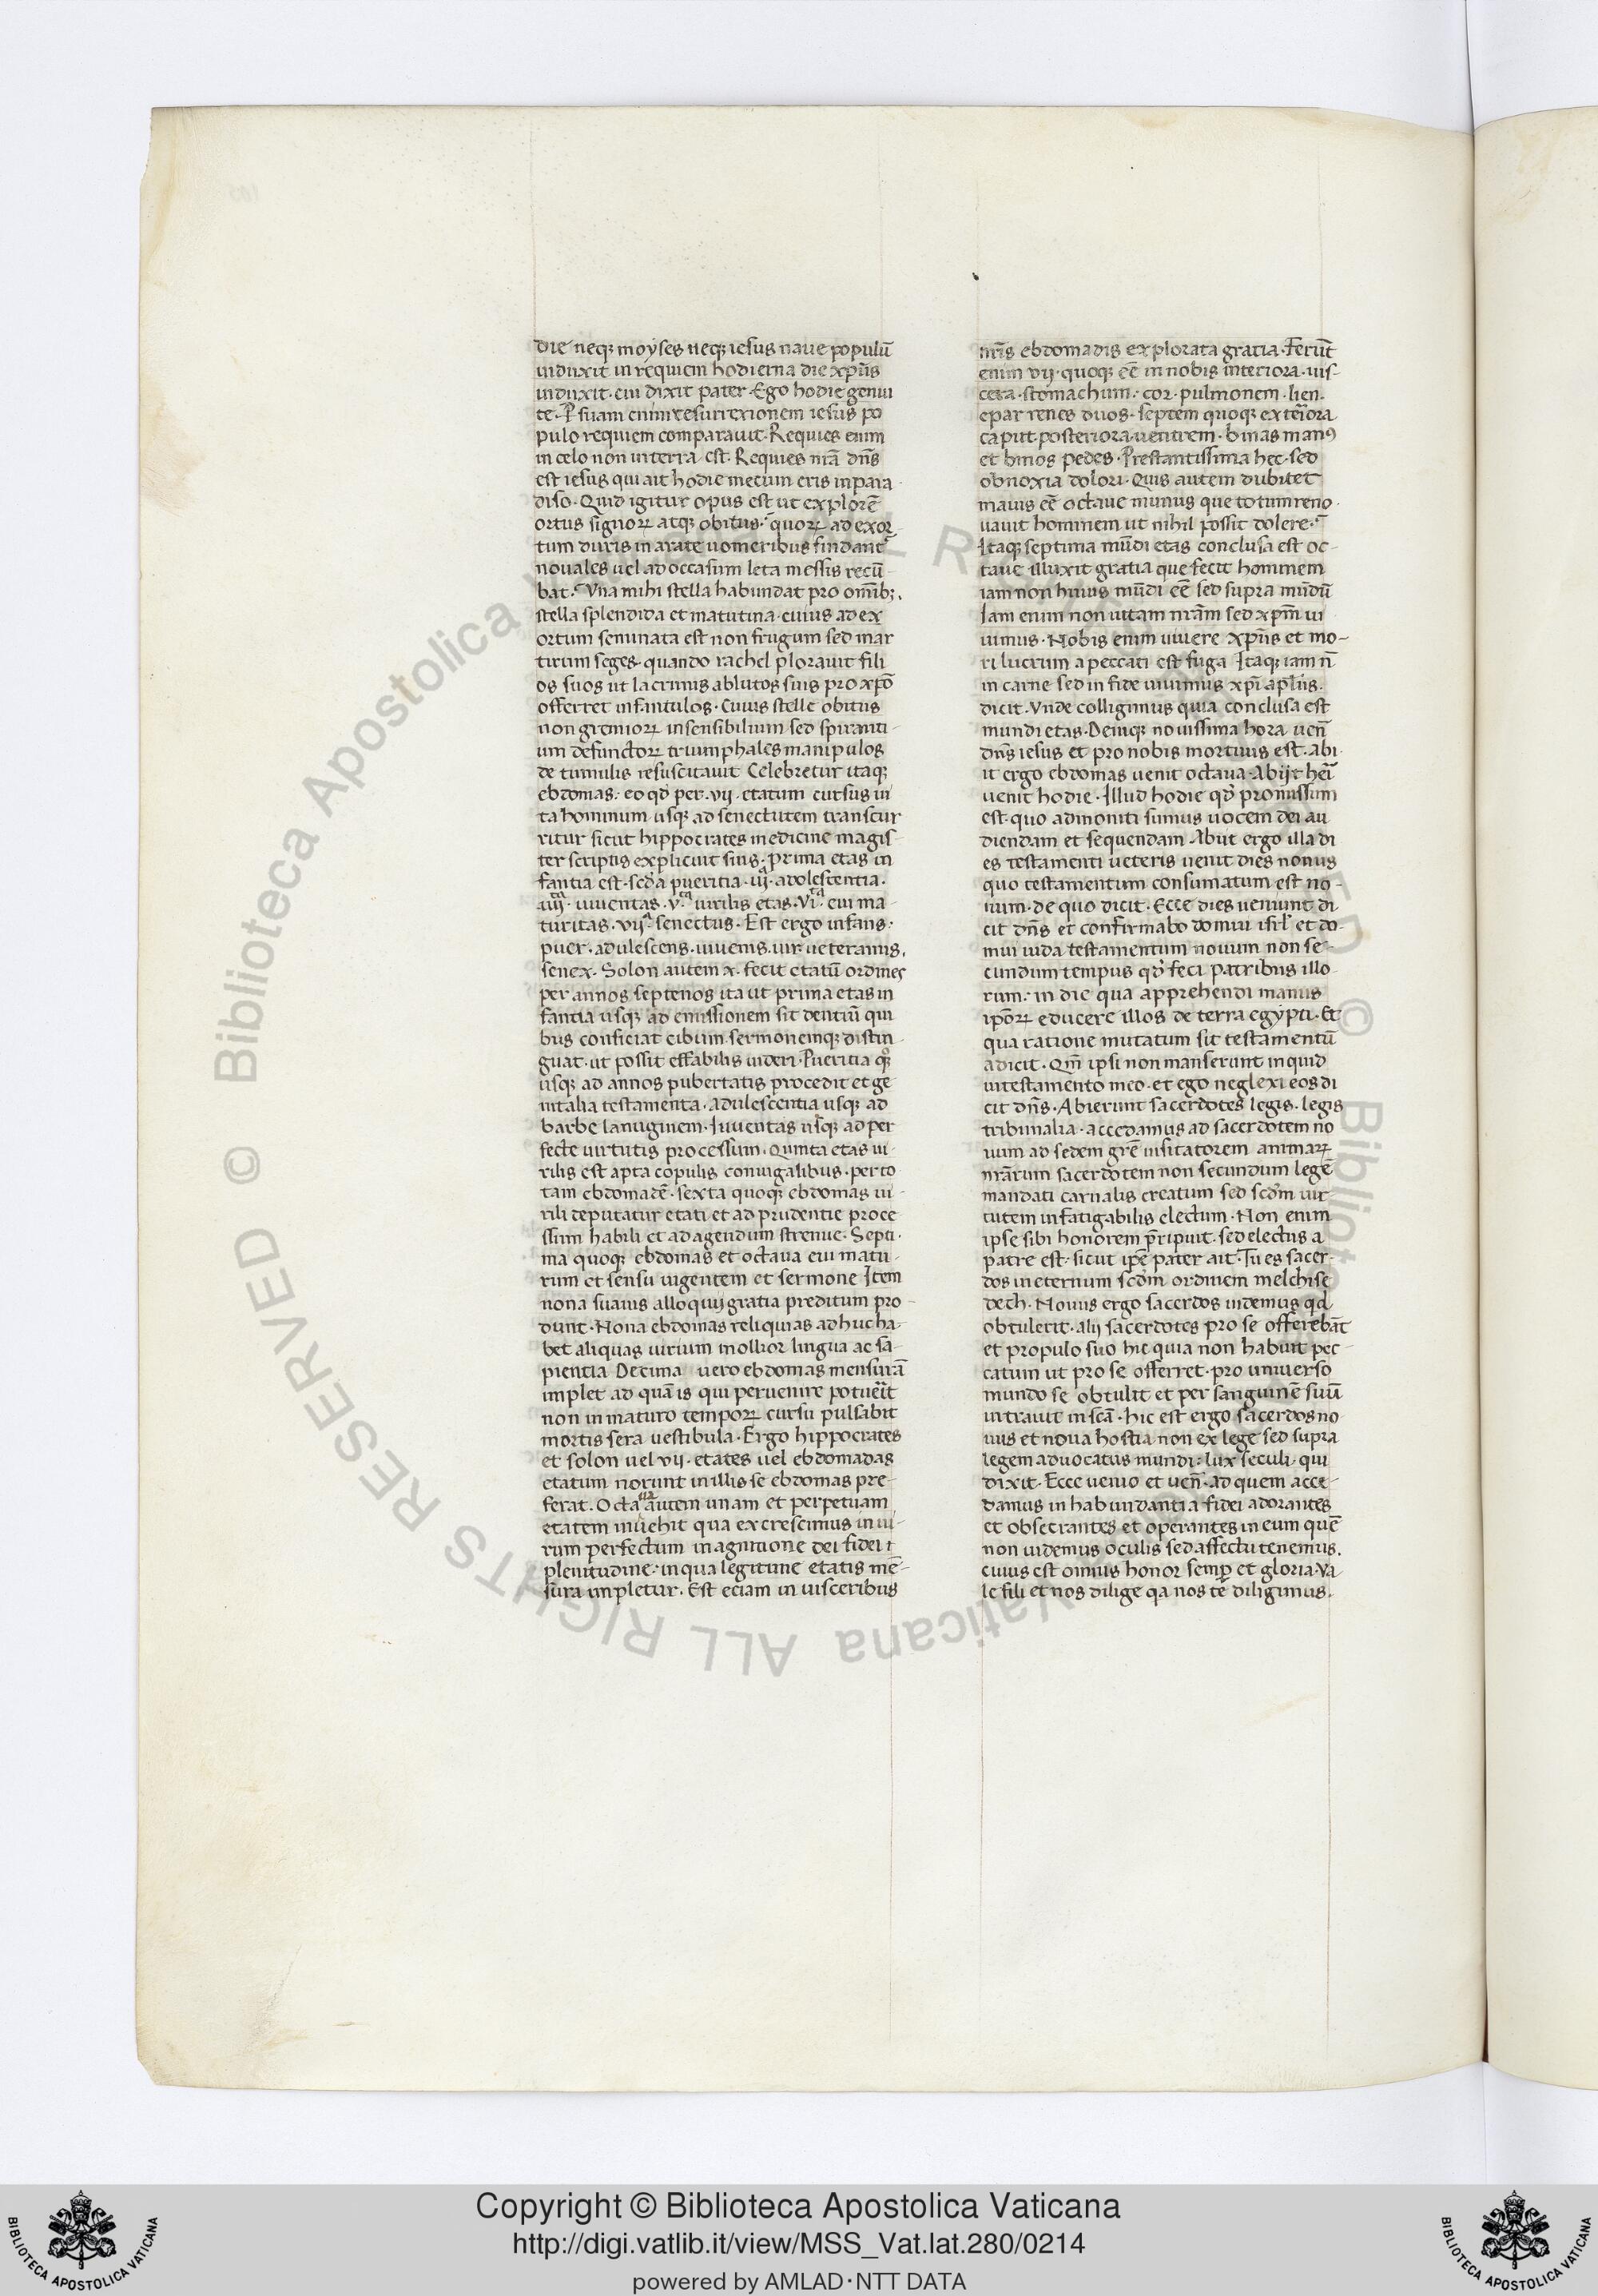 die neqꝫ moyses neqꝫ iesus naue populū
induxit in requiem hodierna die xp̄us
induxit · cui dixit pater · Ego hodie genui
te · P suam enim resurrexionem iesus po
pulo requiem comparauit · Requies enim
in celo non in terra est · Requies nrā dn̄s
est iesus qui ait hodie mecum eris in para
diso · Quid igitur opus est ut explorē
ortus signoꝝ atqꝫ obitus · quoꝝ ad exor
tum duris in arate uomeribus findant̄
nouales uel ad occasum leta messis recū
bat · Vna mihi stella habundat pro om̄ibꝫ ·
stella splendida et matutina · cuius ad ex
ortum seminata est non frugum sed mar
tirum seges · quando rachel plorauit fili
os suos ut lacrimis ablutos suis pro xp̄o
offerret infantulos · Cuius stelle obitus
non gremioꝝ insensibilium sed spiranti-
um defunctoꝝ triumphales manipulos
de tumulis resuscitauit Celebretur itaqꝫ
ebdomas · eo qd̄ per · vii · etatum cursus ui
ta hominum usqꝫ ad senectutem transcur
ritur sicut hippocrates medicine magis-
ter scriptis explicuit suis · Prima etas in
fantia est · scd̄a pueritia · iijᵃ · adolescentia ·
iiijᵗᵃ · iuuentas · vᵗᵃ uirilis etas · viᵗᵃ · eui ma-
turitas · viiᵃ senectus · Est ergo infans ·
puer · adulescens · iuuenis · uir ueteranus ·
senex · Solon autem x · fecit etatū ordines
per annos septenos ita ut prima etas in
fantia usqꝫ ad emissionem sit dentiū qui
bus conficiat cibum sermonemqꝫ distin
guat · ut possit effabilis uideri · Pueritia qꝫ
usqꝫ ad annos pubertatis procedit et ge
nitalia testamenta · adulescentia usqꝫ ad
barbe lanuginem · Iuuentas usqꝫ ad per
fecte uirtutis processum · Quinta etas ui-
rilis est apta copulis coniugalibus · per to
tam ebdomadē · sexta quoqꝫ ebdomas ui-
rili deputatur etati et ad prudentie proce
ssum habili et ad agendum strenue · Septi-
ma quoqꝫ ebdomas et octaua eui matu-
rum et sensu uigentem et sermone Item
nona suauis alloquij gratia preditum pro-
dunt · Nona ebdomas reliquias adhuc ha-
bet aliquas uirium mollior lingua ac sa-
pientia Decima uero ebdomas mensurā
implet ad quā is qui peruenire potuerit
non inmaturo tempoꝝ cursu pulsabit
mortis sera uestibula · Ergo hippocrates
et solon uel vii · etates uel ebdomadas
etatum norunt in illis se ebdomas pre-
ferat · Octaua autem unam et perpetuam
etatem inuehit qua excrescimus in ui-
rum perfectum in agnitione dei fidei ⁊
plenitudine · in qua legitime etatis mē-
sura impletur · Est eciam in uisceribus
nrīs ebdomadis explorata gratia · Ferūt
enim vij · quoqꝫ eē in nobis interiora · uis-
cera · stomachum · cor · pulmonem · lien ·
epar renes duos · septem quoqꝫ exteriora
caput · posteriora · uentrem · binas man9
et binos pedes · Prestantissima hec · sed
obnoxia dolori · Quis autem dubitet
maius eē octaue munus que totum reno-
uauit hominem ut nihil possit dolere ·
Itaqꝫ septima mūdi etas conclusa est oc-
taue illuxit gratia que fecit hominem
iam non huius mūdi eē sed supra mūdū
Iam enim non uitam nrām sed xp̄m ui
uimus · Nobis enim uiuere xp̄us et mo-
ri lucrum a peccati est fuga Itaqꝫ iam n̄
in carne sed in fide uiuimus xp̄i ap̄lus ·
dicit · Vnde colligimus quia conclusa est
mundi etas · Deniqꝫ nouissima hora uen̄
dn̄s iesus et pro nobis mortuus est · Abi-
it ergo ebdomas uenit octaua · Abijt heri
uenit hodie · Illud hodie qd̄ promissum
est · quo admoniti sumus uocem dei au
diendam et sequendam Abiit ergo illa di
es testamenti ueteris uenit dies nouus
quo testamentum consumatum est no-
uum · de quo dicit · Ecce dies ueniunt di
cit dn̄s et confirmabo domui isrl̄ et do-
mui iuda testamentum nouum non se-
cundum tempus qd̄ feci patribus illo-
rum · in die qua apprehendi manus
ip̄oꝝ educere illos de terra egypti · Et
qua ratione mutatum sit testamentū
adicit · Qm̄ ipsi non manserunt inquid
in testamento meo · et ego neglexi eos di
cit dn̄s · Abierunt sacerdotes legis · legis
tribunalia · accedamus ad sacerdotem no
uum ad sedem grē uisitatorem animaꝝ
nrārum sacerdotem non secundum legē
mandati carnalis creatum sed scd̄m uir-
tutem infatigabilis electum · Non enim
ipse sibi honorem p̄ripuit · sed electus a
patre est · sicut ip̄e pater ait · Tu es sacer-
dos in eternum scd̄m ordinem melchise
dech · Nouus ergo sacerdos uidemus qd̄
obtulerit · alij sacerdotes pro se offerebāt
et pro populo suo hic quia non habuit pec-
catum ut pro se offerret · pro uniuerso
mundo se obtulit et per sanguinē suū
intrauit in scā · hic est ergo sacerdos no
uus et noua hostia non ex lege sed supra
legem aduocatus mundi · lux seculi · qui
dixit · Ecce uenio et uen̄ · ad quem acce-
damus in habundantia fidei adorantes
et obsecrantes et operantes in eum quē
non uidemus oculis sed affectu tenemus ·
cuius est omnis honor semp̄ et gloria · Va-
le fili et nos dilige qa nos te diligimus ·
Copyright © Biblioteca Apostolica Vaticana
http://digi.vatlib.it/view/MSS_Vat.lat.280/0214
powered by AMLAD·NTT DATA
BIBLIOTECA APOSTOLICA VATICANA
BIBLIOTECA APOSTOLICA VATICANA
© Biblioteca Apostolica Vaticana ALL RIGHTS RESERVED © Biblioteca Apostolica Vaticana ALL RIGHTS RESERVED